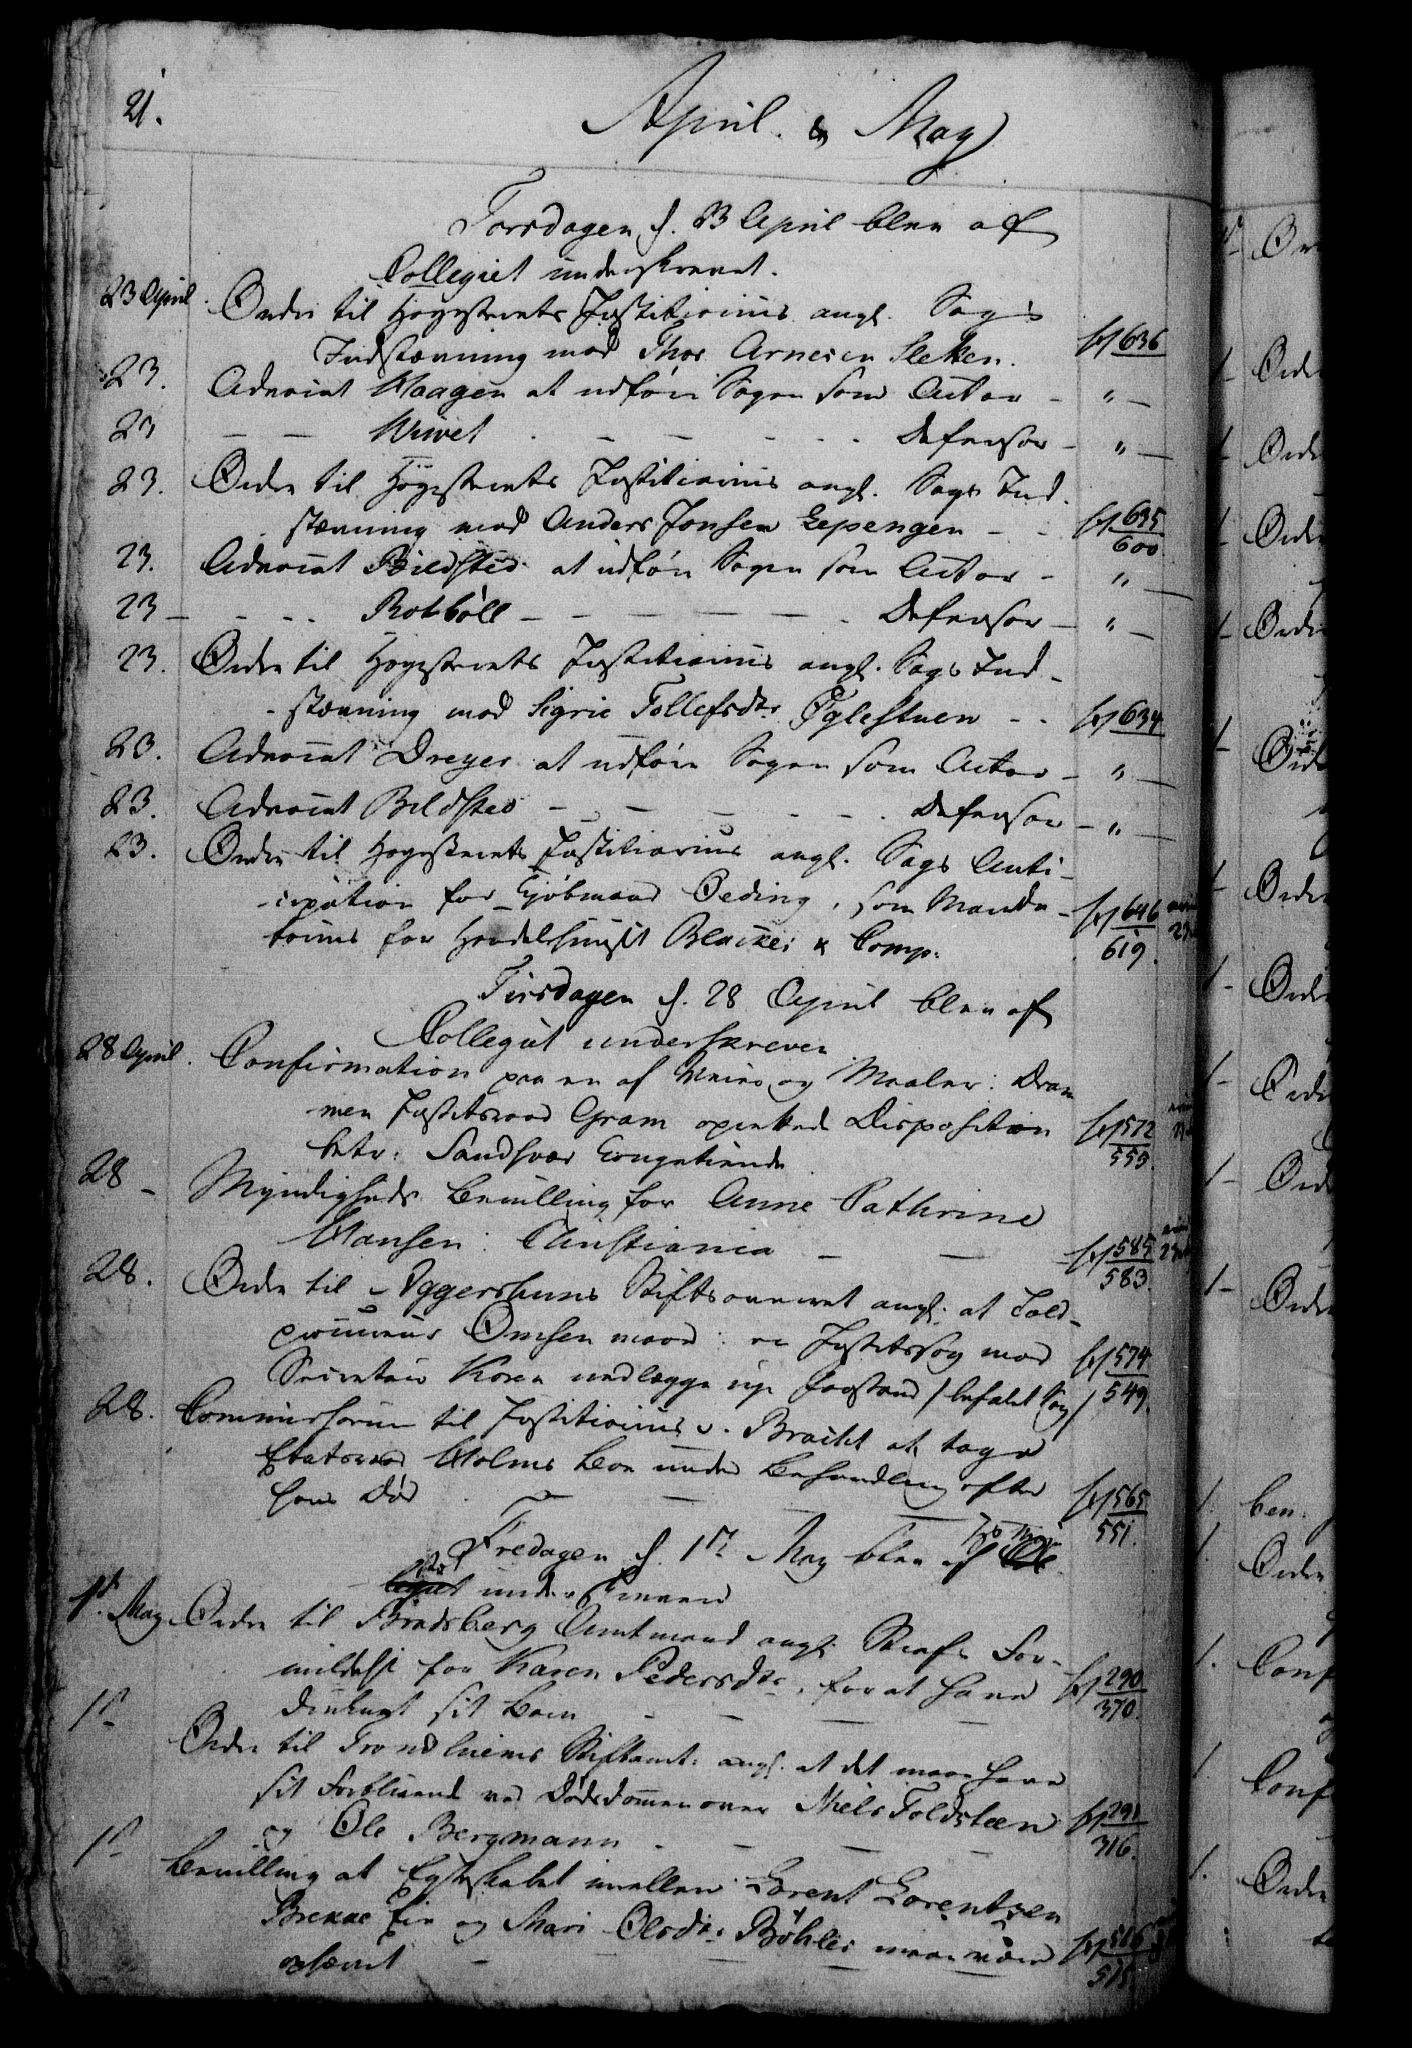 21.
April & May
Torsdagen d. 23 April blev af
Collegiet underskrevet.
23 April. Ordre til Høyesterets Justitiarius angl. Sags
Indstævning mod Thor Arnesen Sletten. 636
23. Advocat Haagen at udføre Sagen som Actor - " -
23 - - Wivet - - - Defensor - " -
23. Ordre til Høyesterets Justitiarius angl. Sags Ind-
stævning mod Anders Jonsen Eepengen - - 635
600
23. Advocat Bildsted at udføre Sagen som Actor - " -
23 - - - Rotbøll - - - - Defensor - " -
23. Ordre til Høyesterets Justitiarius angl. Sags Ind-
stævning mod Sigrie Tollefsdtr Øglestuen - - 634
23. Advocat Dreyer at udføre Sagen som Actor - " -
23. Advocat Bildsted - - - - Defensor - " -
23. Ordre til Høyesterets Justitiarius angl. Sags Anti-
cipation for Kjøbmand Oeding, som Manda- 646
tarius for Handelshuset Blacker & Comp. 619.
Tirsdagen d. 28 April blev af
Collegiet underskreven
28 April. Confirmation paa en af Veier og Maaler i Dram-
men Justitsraad Gram oprettede Disposition 572
betr: Sandsvær Kongetiende 553.
28 - Myndigheds Bevilling for Anne Cathrine
Hansen i Christiania - - 585
583.
28. Ordre til Aggershuus Stiftsoverret angl. at Told-
procureur Omsen maae i en Justitssag mod 574
Secretair Koren nedlægge nye Paastand / befalet Sag / 549.
28. Commissorium til Justitiarius v. Bracht at tage
Etatsraad Holms Boe under Behandling efter 565
hans Død - - - 551.
Fredagen d. 1st May blev af
underskreven
1st May Ordre til Bradsberg Amtmand angl. Straffs For-
mildelse for Karen Pedersdtr, for at have 290
dulgt sit Barn - - - - 370.
1st Ordre til Trondhiems Stiftamt: angl. at det maae have
sit Forblivende ved Dødsdommen over Niels Foldsteen 291
og Ole Bergmann - - - - 316.
1st Bevilling at Egteskabet imellem Lorent Lorentzen
Brekke Eie og Mari Olsdtr Bøhler maae være 516
ophævet - - - - 515